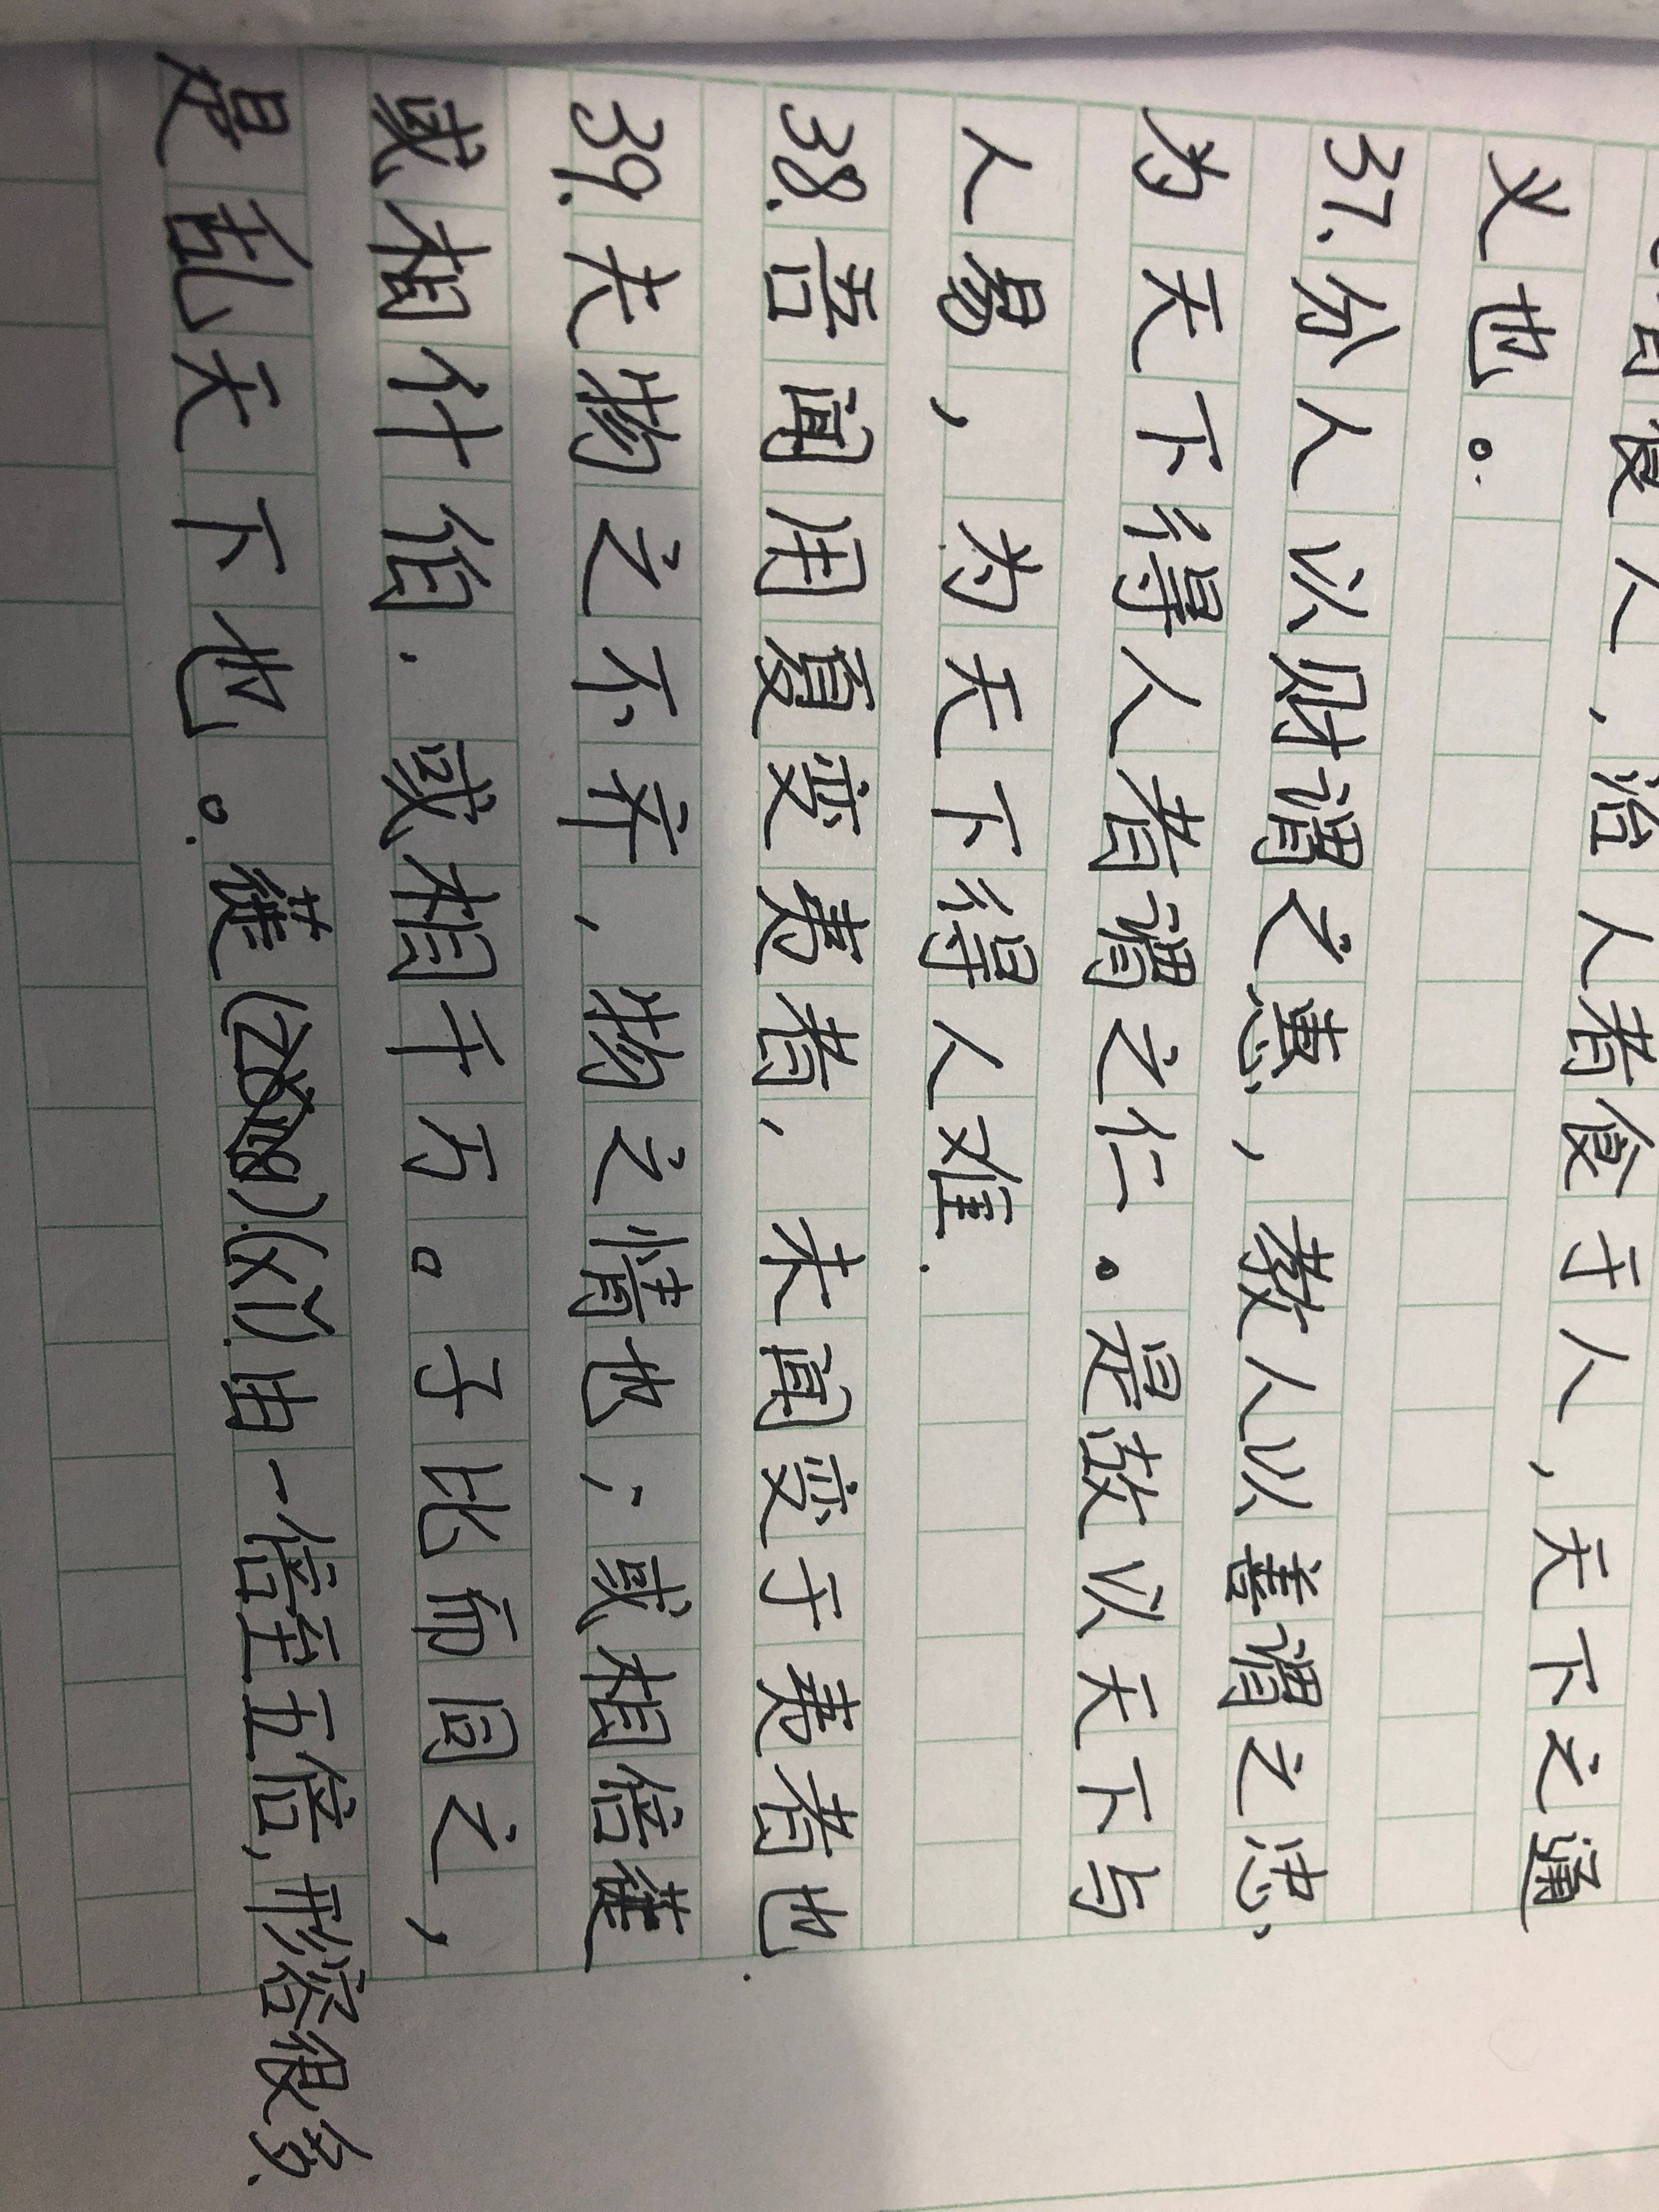 食人,治人者食于人,天下之通
义也。
37、分人以财谓之惠,教人以善谓之忠,
为天下得人者谓之仁。是故以天下与
人易,为天下得人难.
38.吾闻用夏变夷者,未闻变于夷者也.
39.夫物之不齐,物之情也;或相倍蓰
或相什佰.或相千万。子比而同之,
是乱天下也。蓰(xǐ)由一倍至五倍,形容很多.